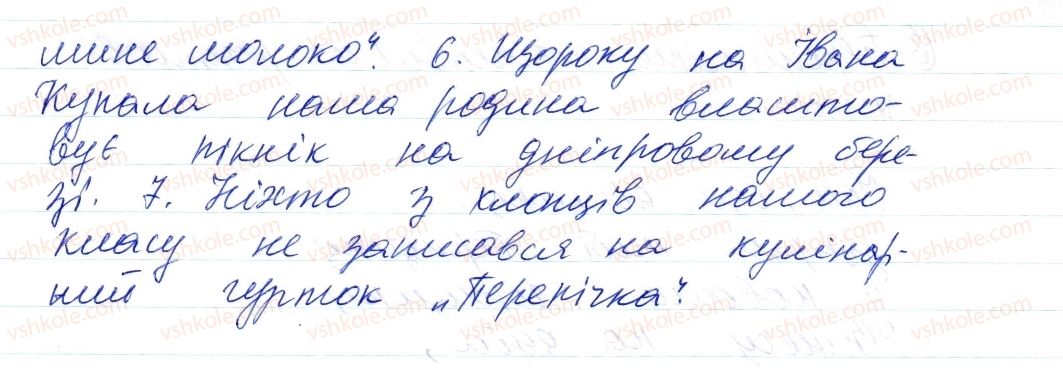 мине молоко". 6. Щороку на Івана
Купала наша родина влашто-
вує пікнік на дніпровому бере-
зі. 7. Ніхто з хлопців нашого
класу не записався на кулінар-
ний гурток „Перепічка".